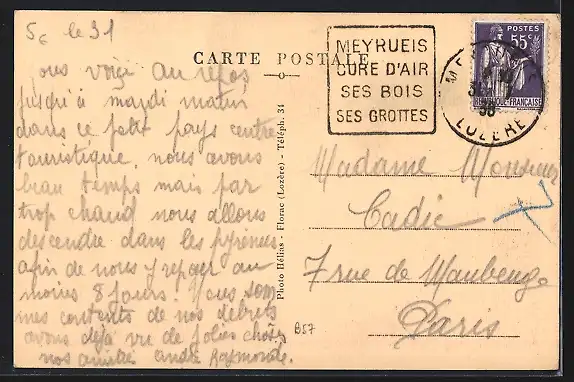 5c le 31
CARTE POSTALE
ous voici au repos
jusqu'à mardi matin
dans ce petit pays centre
touristique, nous avons
beau temps mais pas
trop chaud nous allons
descendre dans les pyrenées
afin de nous y reposer au
moins 8 jours. Nous som
mes contents de nos débuts
avons déjà vu de jolies choses
nos amitiés andré Raymonde.
Photo Hélias - Florac (Lozère) - Téléph. 34
MEYRUEIS
CURE D'AIR
SES BOIS
SES GROTTES
POSTES
55c
REPUBLIQUE FRANÇAISE
38
LOZERE
Madame Monsieur
Cadic
7 rue de Maubeuge
Paris
B57